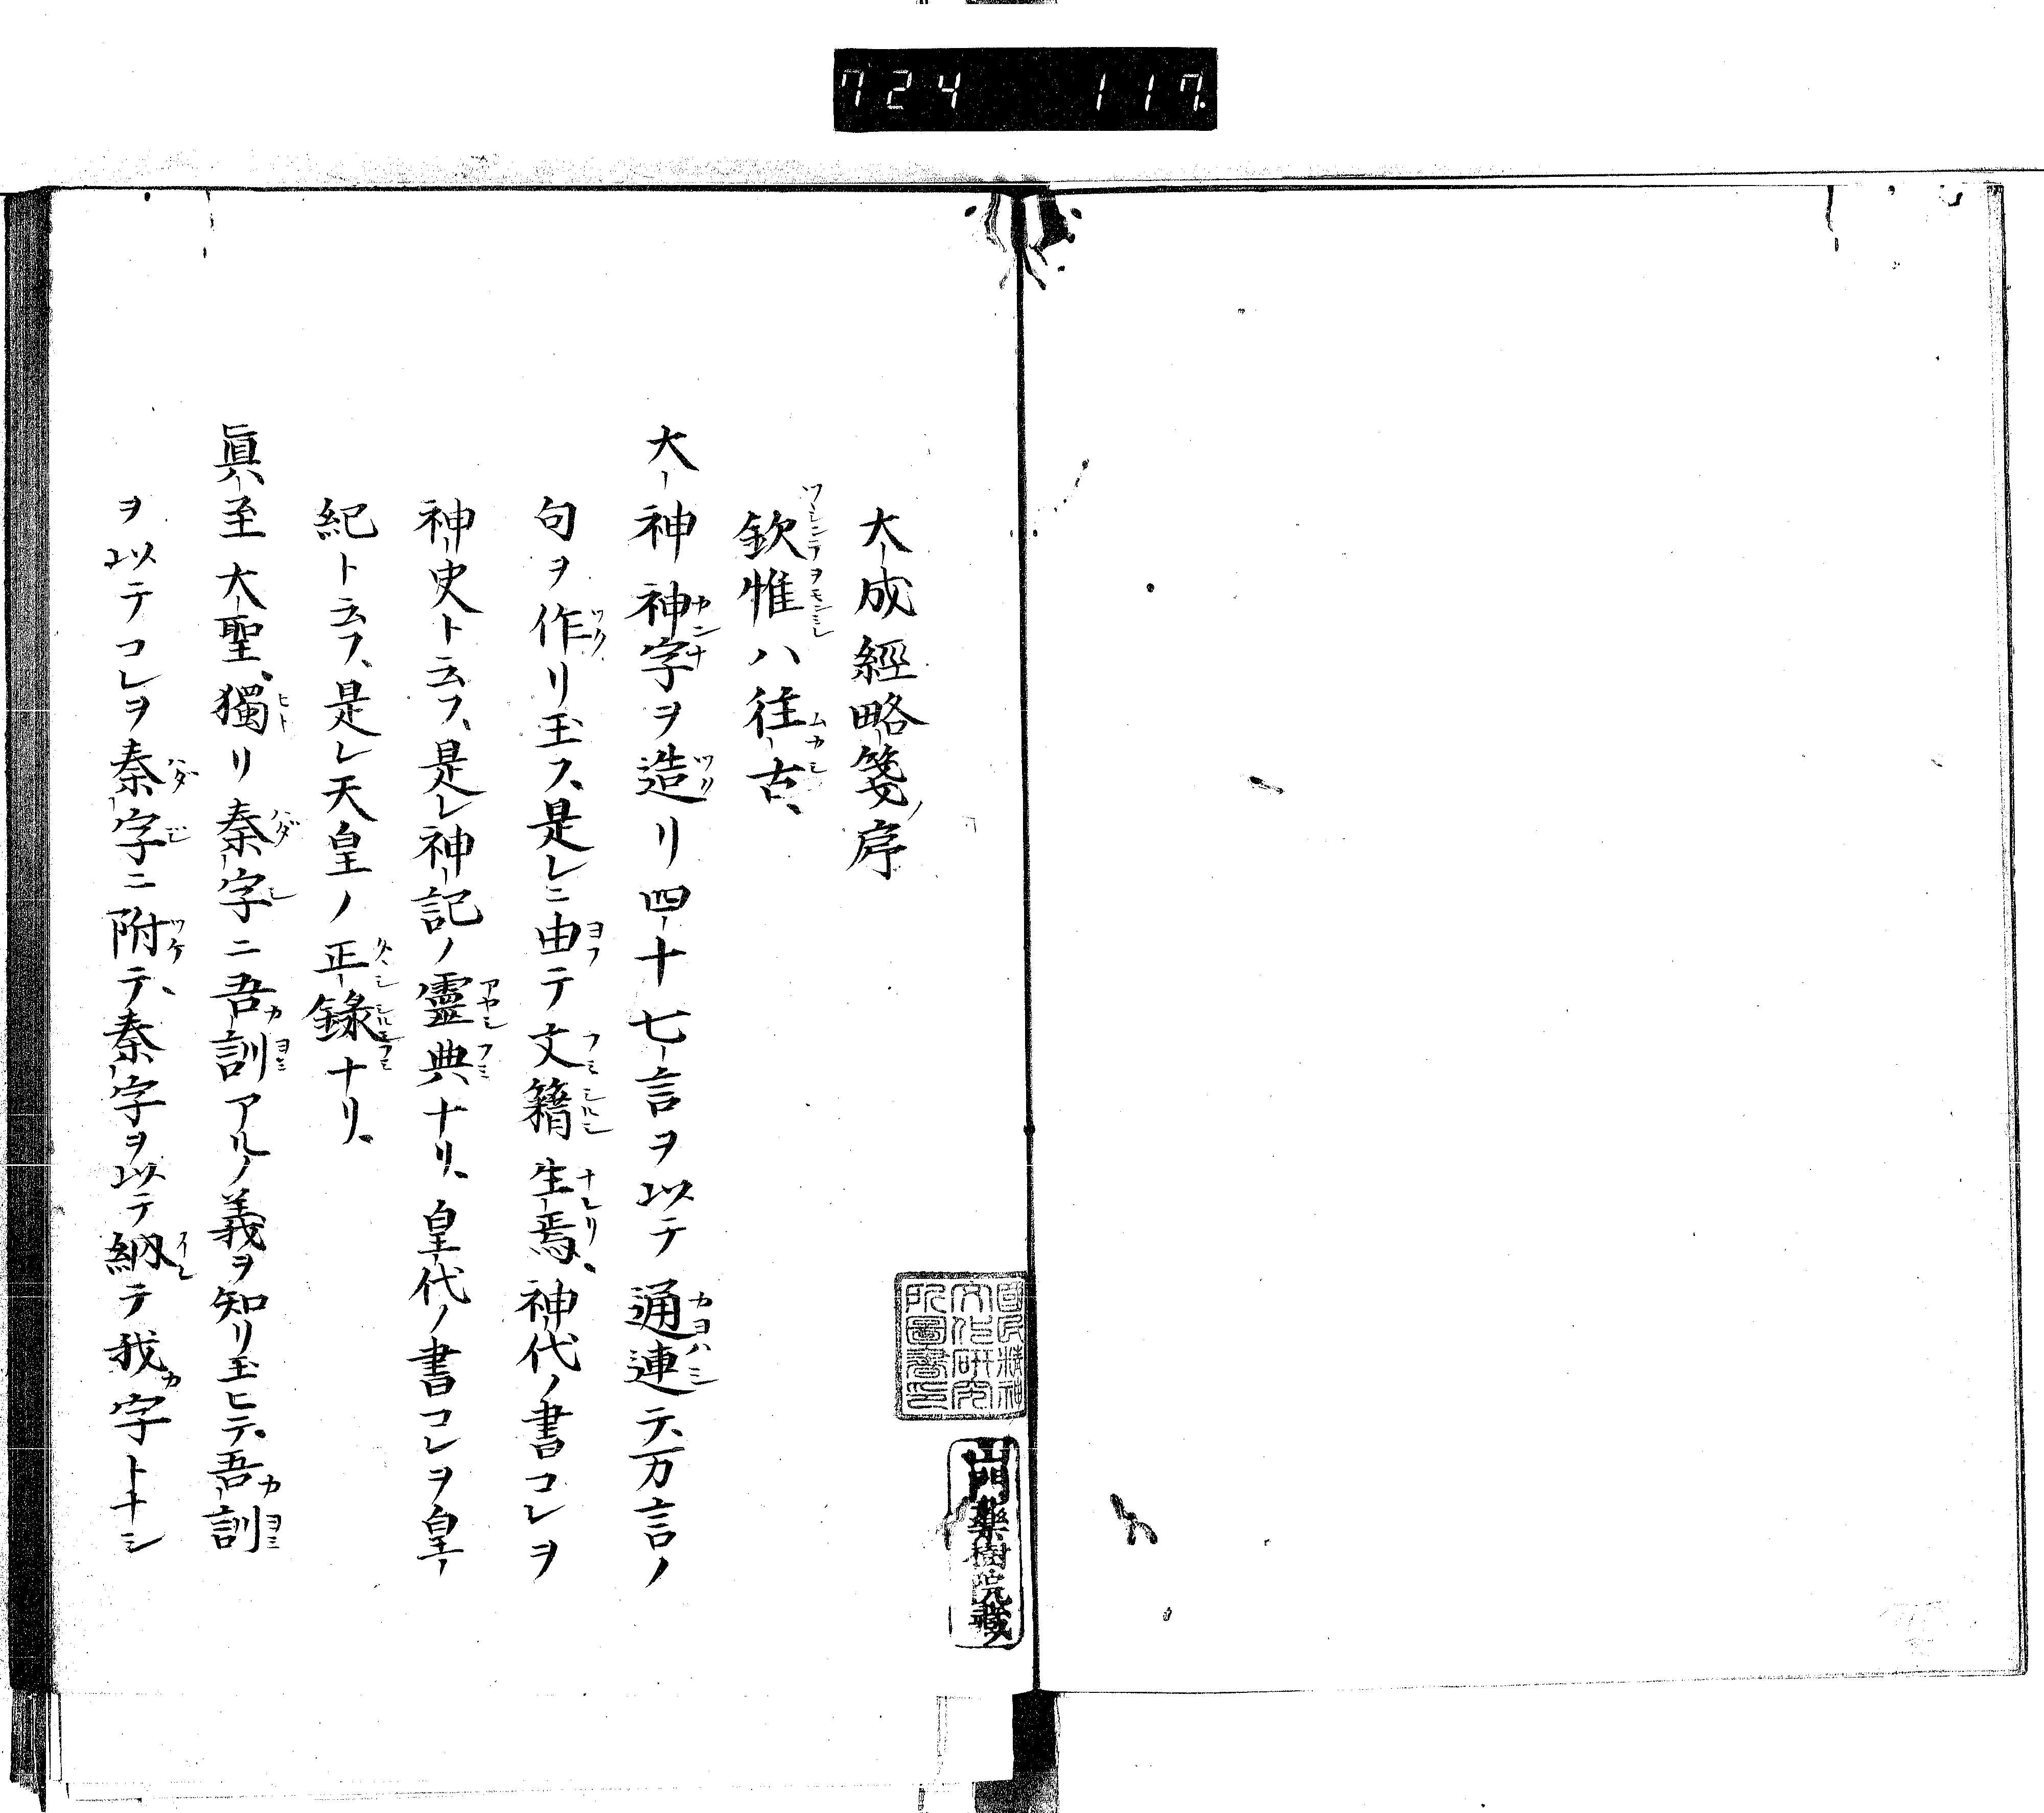 724 117.
大成經略箋ノ序
欽惟ハ往古、
大神神字ヲ造リ四十七言ヲ以テ通連テ、万言ノ
句ヲ作リ玉フ、是レニ由テ文籍生焉、神代ノ書コレヲ
神史ト云フ、是レ神記ノ靈典ナリ、皇代ノ書コレヲ皇
紀ト云フ、是レ天皇ノ正錄ナリ、
眞ハ至大聖、獨リ秦字ニ吾訓アルノ義ヲ知リ玉ヒテ、吾訓
ヲ以テコレヲ秦字ニ附テ、秦字ヲ以テ納テ我字トナシ
國民精神
文化研究
所圖書印
山門藥樹院藏